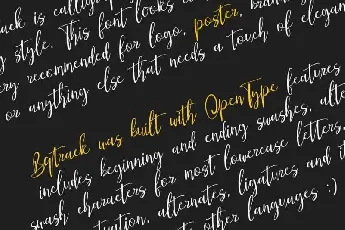 is calligraphy
style. This font looks
recommended for logo, poster,
or anything else that needs a touch of
Bqtrack was built with OpenType features
includes beginning and ending swashes,
swash characters for most lowercase letters,
alternates, ligatures and
other languages :)